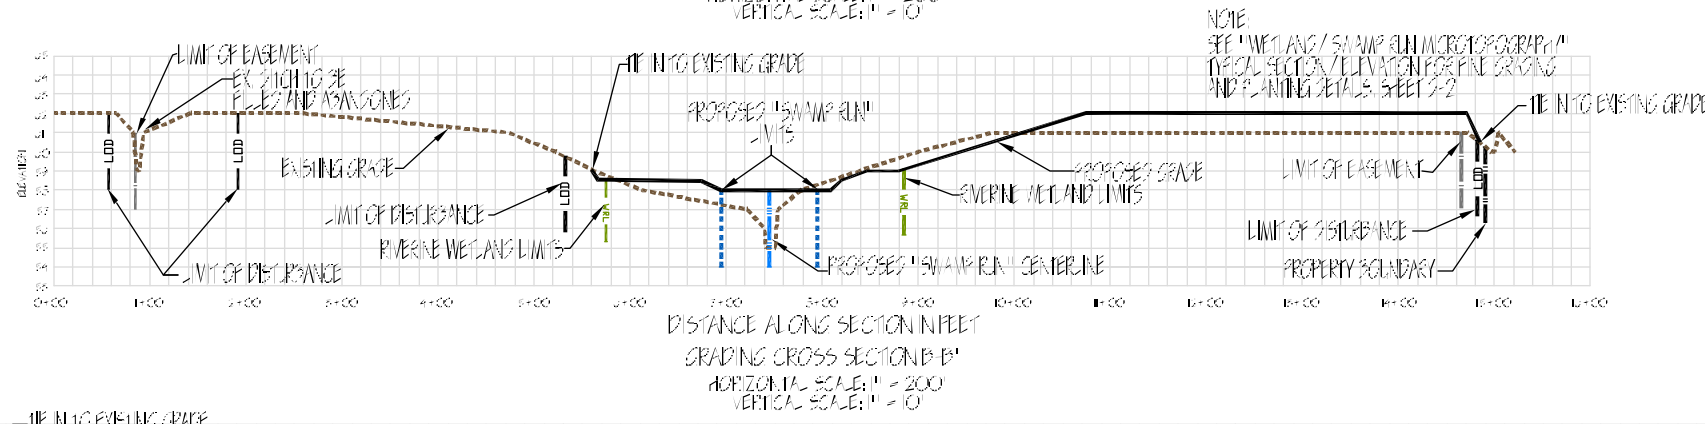 VERTICAL SCALE: 1" = 10'
NOTE:
SEE "WETLAND / SWAMP RUN MICROTOPOGRAPHY"
TYPICAL SECTION / ELEVATION FOR FINE GRADING
AND PLANTING DETAILS, SHEET
LIMIT OF EASEMENT
EX. DITCH TO BE
FILLED AND ABANDONED
TIE IN TO EXISTING GRADE
PROPOSED "SWAMP RUN"
LIMITS
TIE IN TO EXISTING GRADE
LOD
LOD
EXISTING GRADE
LIMIT OF EASEMENT
PROPOSED GRADE
LOD
LOD
ELEVATION
RIVERINE WETLAND LIMITS
WRL
WRL
LIMIT OF DISTURBANCE
LIMIT OF DISTURBANCE
RIVERINE WETLAND LIMITS
PROPOSED "SWAMP RUN" CENTERLINE
PROPERTY BOUNDARY
LIMIT OF DISTURBANCE
0+00 1+00 2+00 3+00 4+00 5+00 6+00 7+00 8+00 9+00 10+00 11+00 12+00 13+00 14+00 15+00
DISTANCE ALONG SECTION IN FEET
GRADING CROSS SECTION B-B'
HORIZONTAL SCALE: 1" = 200'
VERTICAL SCALE: 1" = 10'
TIE IN TO EXISTING GRADE